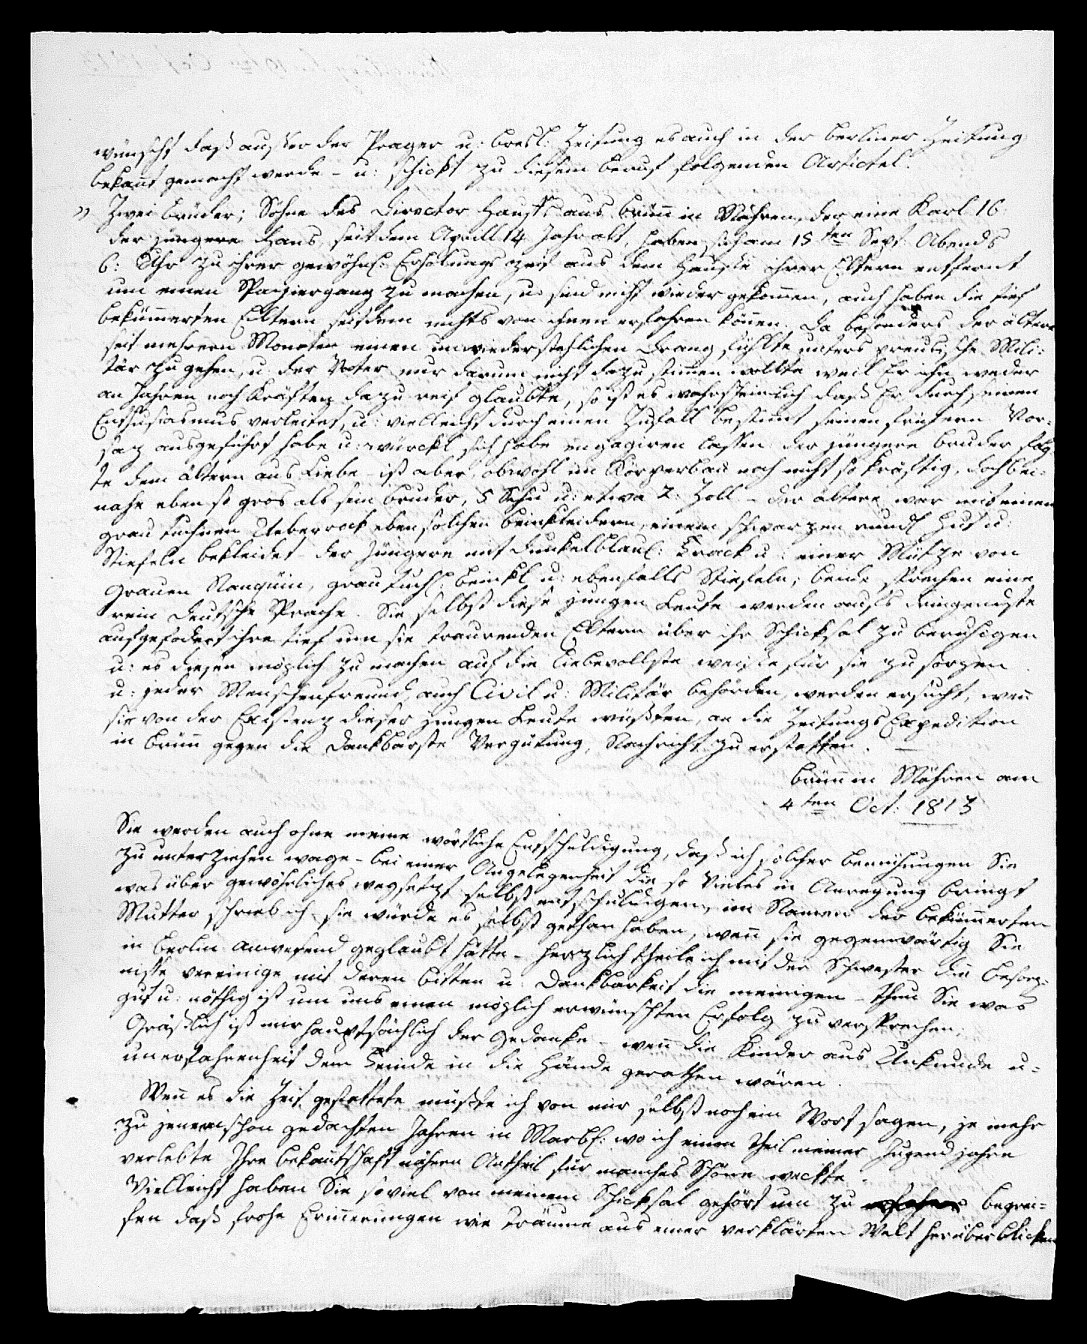 wünscht, daß außer der Prager u: Bresl: Zeitung es auch in der Berliner Zeitung
bekannt gemacht werde – u: schickt zu diesem Beruf folgenden Artickel.
" Zwei Brüder, Söhne des Director Hauff aus Brünn in Mähren, der eine Karl 16
der jüngere Hans, seit dem Aprill 14 Jahr alt, haben sich am 15ten Sept: Abends
6. Uhr zu ihrer gewöhnl: Erholungszeit aus dem Hause ihrer Eltern entfernt
um einen Spaziergang zu machen, u: sind nicht wieder gekommen, auch haben die tief
bekümmerten Eltern seitdem nichts von ihnen erfahren können. Da besonders der ältere
seit mehrern Monaten einen unwiederstehlichen Drang fühlte, unters preusische Mili-
tär zu gehen, u: der Vater nur darum nicht dazu stimen wollte weil Er ihn weder
an Jahren noch Kräften dazu reif glaubte, so ist es wahrscheinlich daß Er durch seinen
Enthusiasmus verleitet, u: vielleicht durch einen Zufall bestimt seinen frühern Vor-
saz ausgeführt habe u: würckl: sich habe engagiren lassen. der jüngere Bruder folg-
te dem ältern aus Liebe – ist aber, obwohl im Körperbau noch nicht so kräftig, doch bei-
nahe eben so gros als sein Bruder, 5 Schu u: etwa 2. Zoll – der ältere war mit einem
grau tuchnen Ueberrock eben solchen Beinkleidern, einem schwarzen rund: Hut u:
Stiefeln bekleidet der Jüngere mit dunkelblau: Frack u: einer Mütze von
grauen Nanquin, grau tuch: Beinkl: u: ebenfalls Stiefeln; beide sprechen eine
rein deutsche Sprache. Sie selbst diese jungen Leute werden aufs dringendste
aufgefodert ihre tief um sie traurenden Eltern über ihr Schicksal zu beruhigen
u: es diesen möglich zu machen auf die liebevollste weise für sie zu sorgen
u: jeder Menschenfreund, auch Civil u: Militär behörden, werden ersucht, wenn
sie von der Existenz dieser jungen Leute wüßten, an die Zeitungs Expedition
in Brünn gegen die dankbarste Vergütung, Nachricht zu erstatten.
Brünn in Mähren am
4ten Oct: 1813
Sie werden auch ohne meine wörtliche Entschuldigung, daß ich solcher bemühungen Sie
zu unterziehen wage – bei einer Angelegenheit die so Vieles in Anregung bringt
was über gewöhnliches wegsetzt selbst entschuldigen, im Namen der bekümmerten
Mutter schrieb ich, sie würde es selbst gethan haben, wenn sie gegenwärtig Sie
in Berlin anwesend geglaubt hätte – herzlich theile ich mit der Schwester die Besorg-
nisse vereinige mit deren bitten u: Dankbarkeit die meinigen – thun Sie was
gut u: nöthig ist um uns einen möglich erwünschten Erfolg zu versprechen;
Gräßlich ist mir hauptsächlich der Gedanke – wenn die Kinder aus Unkunde u:
unerfahrenheit dem Feinde in die Hände gerathen wären.
Wenn es die Zeit gestattete müßte ich von mir selbst noch ein Wort sagen, je mehr
zu jenen schon gedachten Jahren in Marb: wo ich einen Theil meiner Jugendjahre
verlebte Ihre bekantschaft nähern Antheil für manches Schöne weckte
Vielleicht haben Sie soviel von meinem Schicksal gehört um zu begrei-
fen daß frohe Erinnerungen wie träume aus einer verklärten Welt herüberblicken